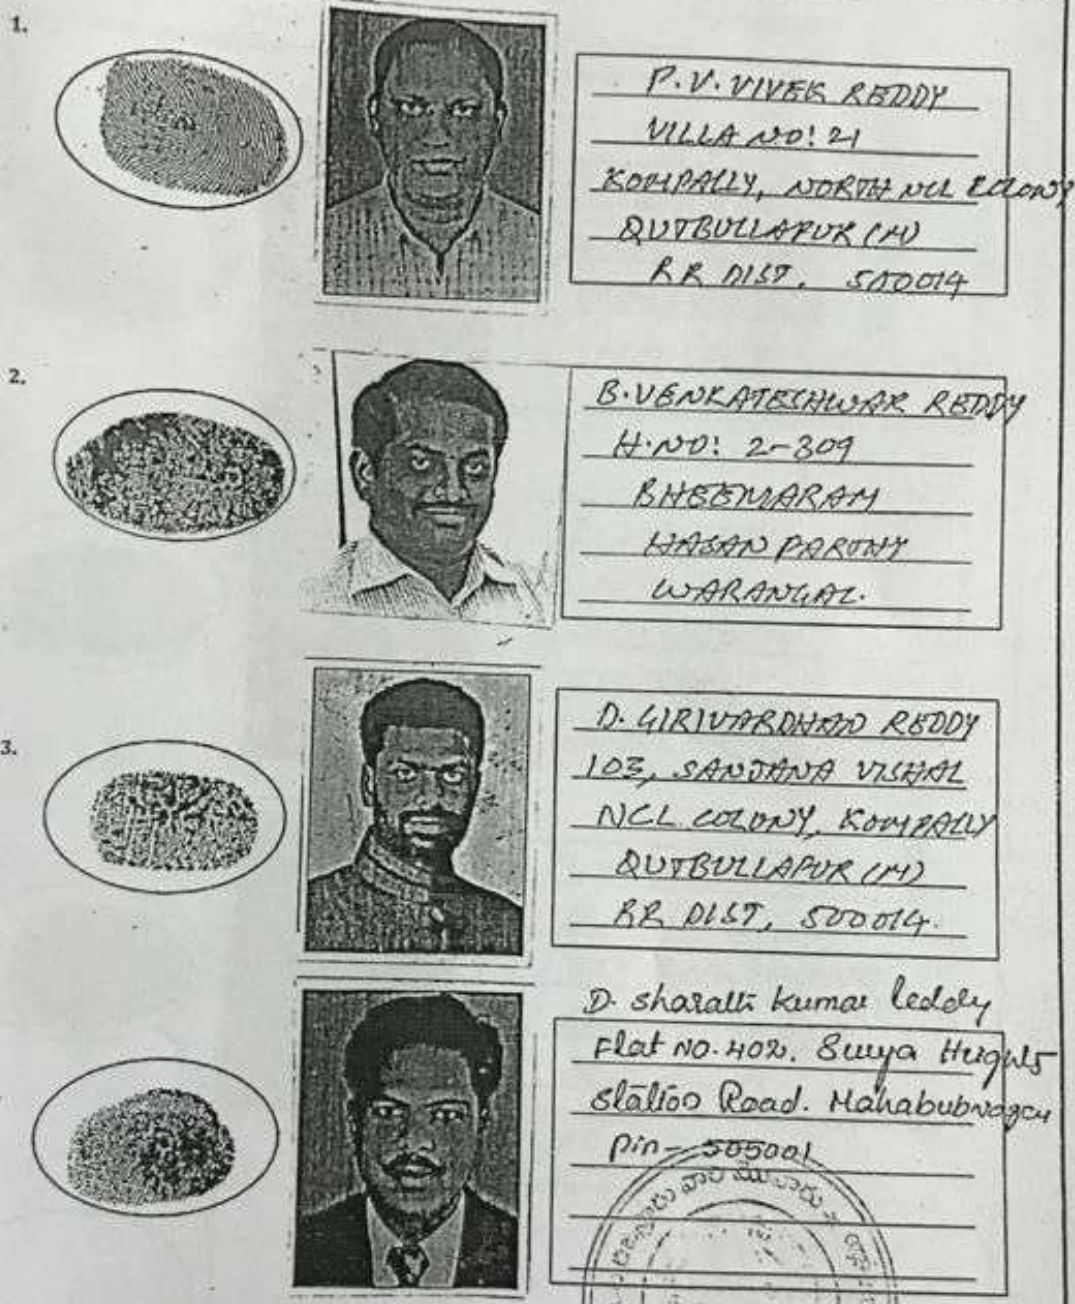 1.
P.V. VIVEK REDDY
VILLA NO: 21
KOMPALLY, NORTH NCL COLONY
QUTBULLAPUR (M)
RR DIST. 500014
2.
B. VENKATESHWAR REDDY
H.NO: 2-309
BHEEMARAM
HASAN PARTHY
WARANGAL.
3.
D. GIRIVARDHAN REDDY
103, SANJANA VISHAL
NCL COLONY, KOMPALLY
QUTBULLAPUR (M)
RR DIST, 500014.
D. Sharath kumar Reddy
Flat NO. 402. Surya Heights
Station Road. Mahabubnagar
Pin- 505001